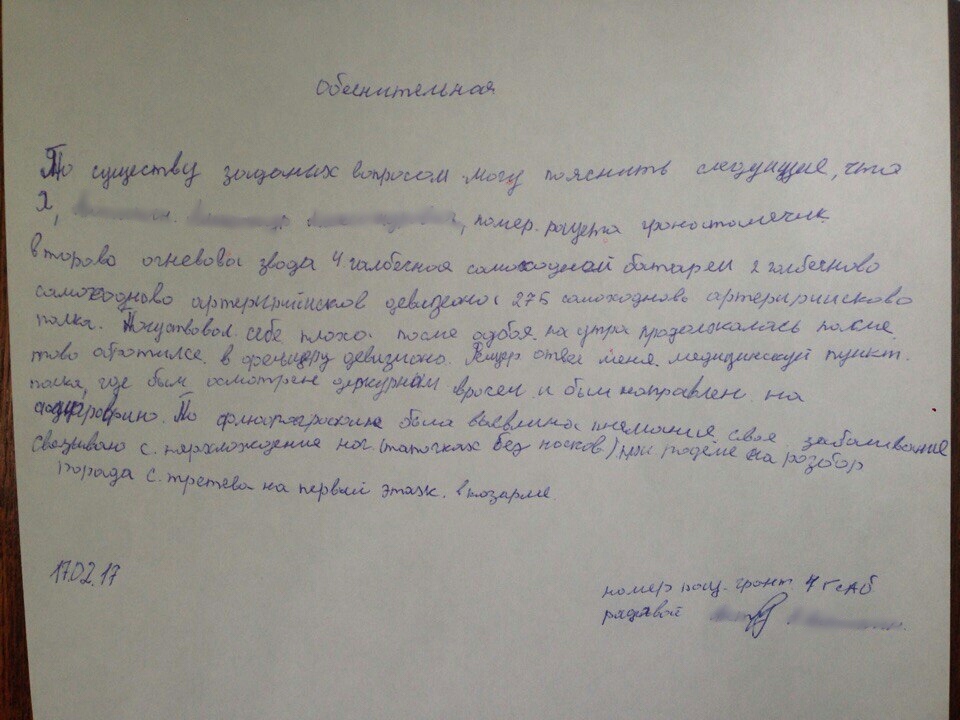 Обеснительная
По существу заданых вопросом могу пояснить следующие, что
Я, номер. ращета граностомечик
второво огневова звода 4 галбечная самоходной батареи 2 галбечново
самоходново артеририйсков девизеона 275 самоходново артеририйсково
полка. Почуствовал себе плохо. после адбоя. на утра продолжалась после
тово абротилсе. в фелшеру девизиона. отвел меня. медицинскуй пункт.
полка, где был осмотрен дижурным врочем и был направлен на
По была выевлина пнемания свае забаливание
свезываю с. пархлождение ног (таточках без носков) при на розбор
порада с. третева на первый этаж. в козарме.
17.02.17
номер ращ. грант. 4 ГСАБ
радавой